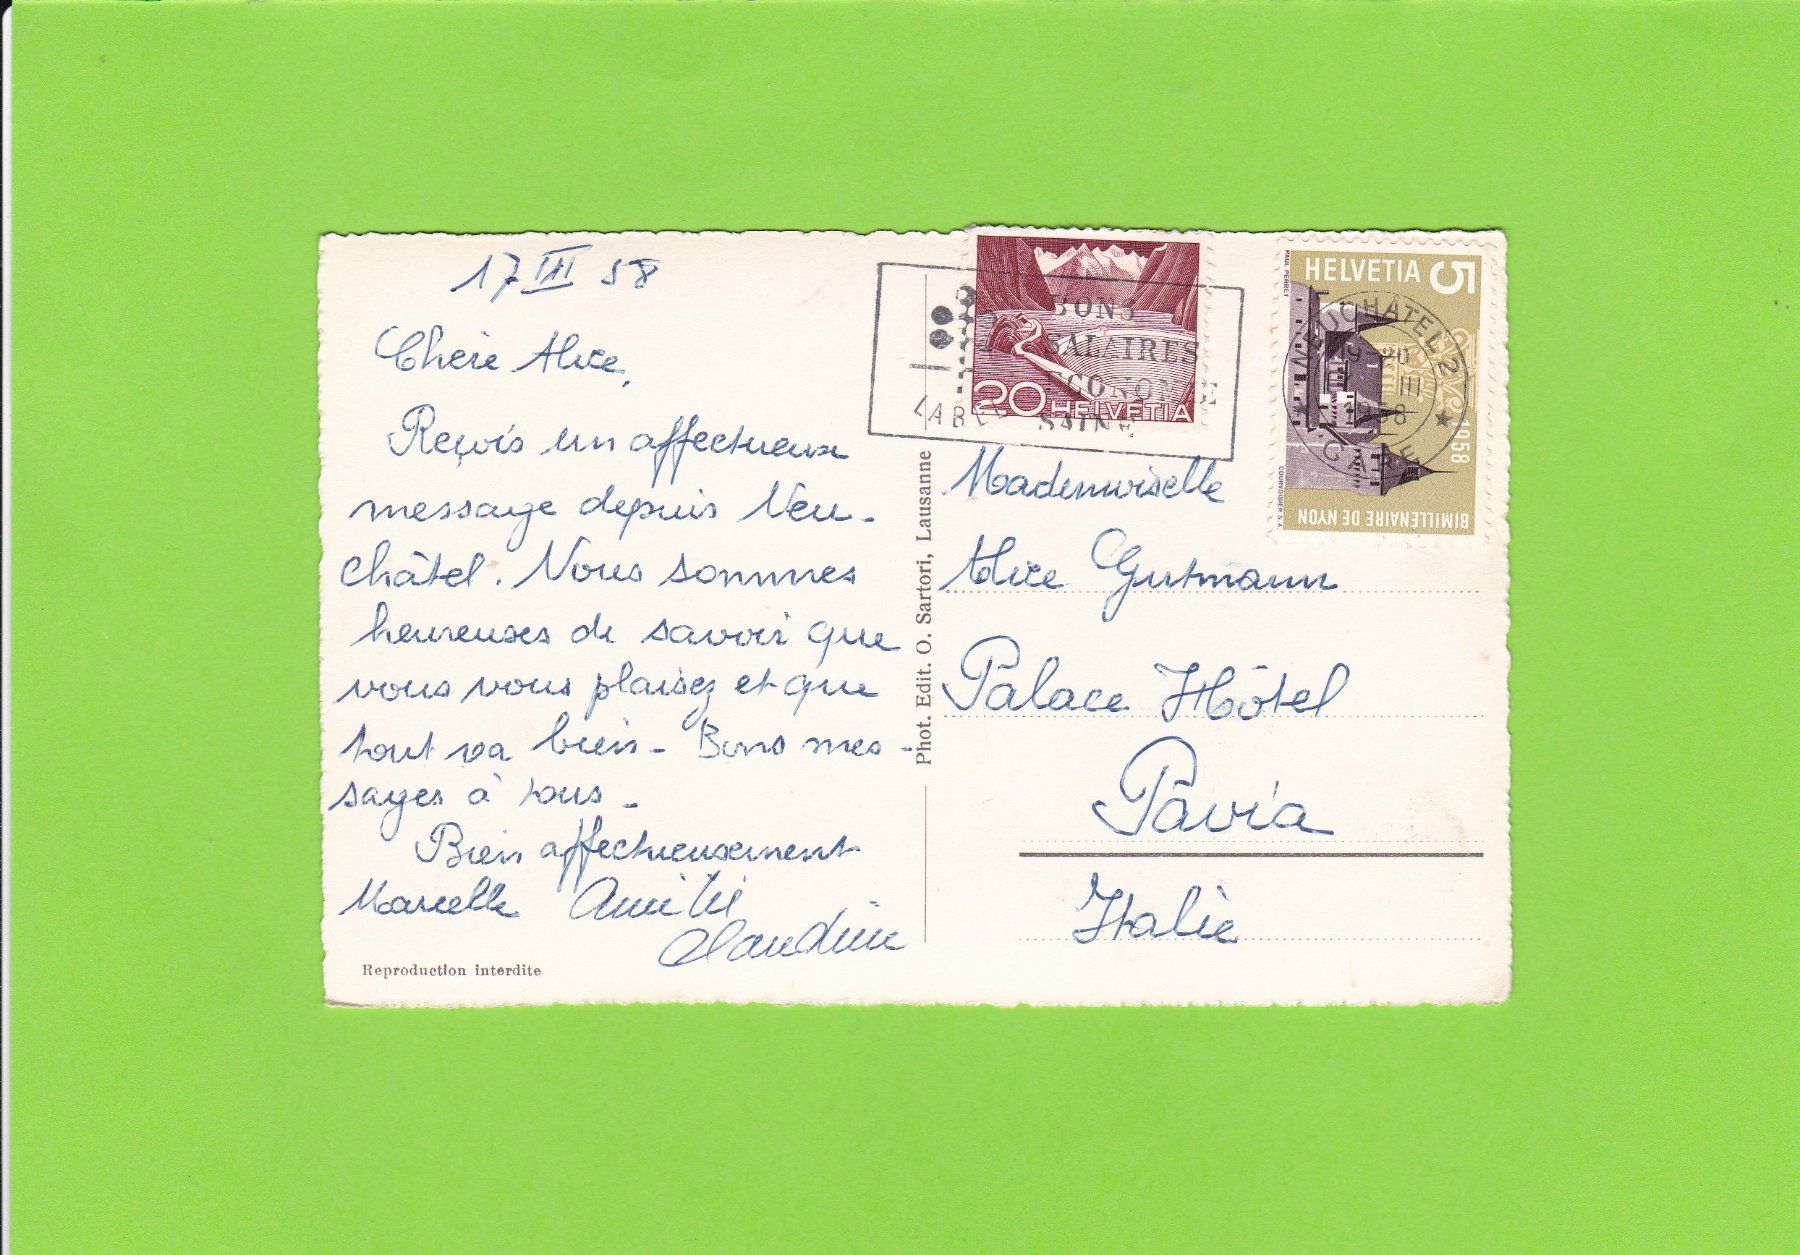 17 III 58
Chère Alice,
Reçois un affectueux
message depuis Neu-
châtel. Nous sommes
heureuses de savoir que
vous vous plaisez et que
tout va bien - Bons mes-
sages à tous -
Bien affectueusement
Marcelle Amitié
Claudine
Reproduction interdite
Phot. Edit. O. Sartori, Lausanne
BONS
SALAIRES
ECONOMIE
SAINE
LABEL
20 HELVETIA
HELVETIA 5
PAUL PERRET
COURVOISIER S.A.
1958
BIMILLÉNAIRE DE NYON
NEUCHÂTEL 2
GARE
III
Mademoiselle
Alice Gutmann
Palace Hôtel
Pavia
Italie